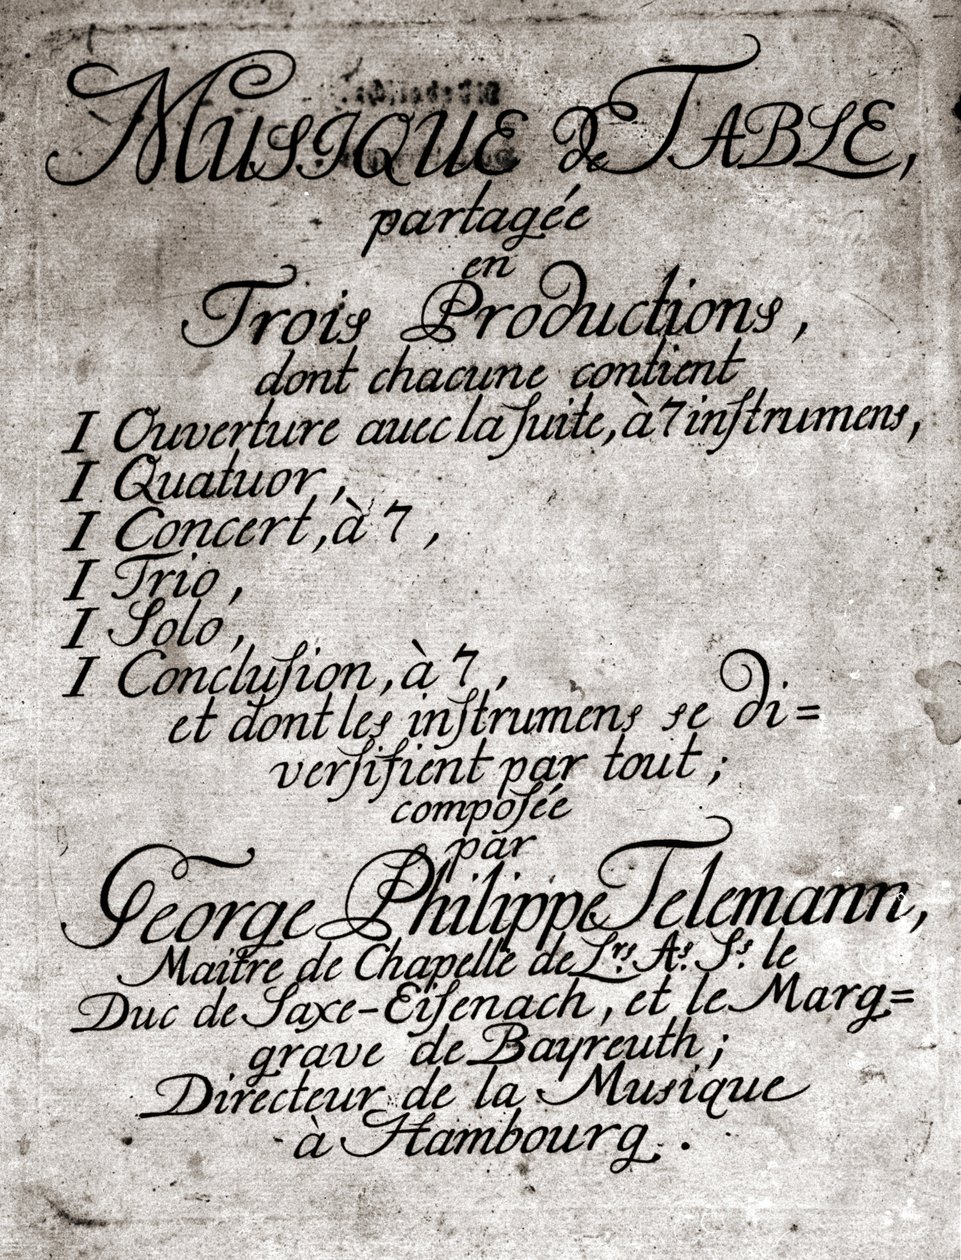 MUSIQUE de TABLE,
partagée
en
Trois Productions,
dont chacune contient
I Ouverture auec la ſuite, à 7 inſtrumens,
I Quatuor,
I Concert, à 7,
I Trio,
I Solo,
I Concluſion, à 7,
et dont les inſtrumens se di=
verſifient par tout;
compoſée
par
George Philippe Telemann,
Maitre de Chapelle de L.rs A.s S.s le
Duc de Saxe-Eiſenach, et le Marg=
grave de Bayreuth;
Directeur de la Musique
à Hambourg.